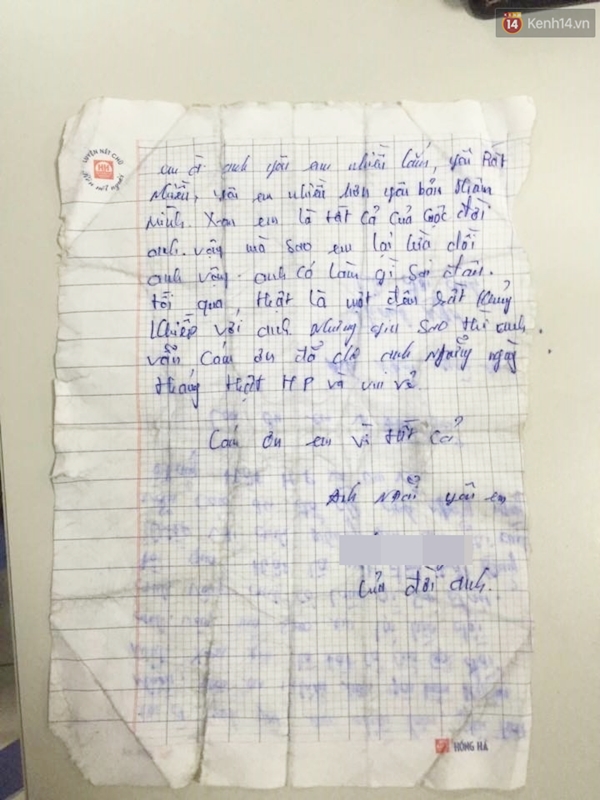 14 Kenh14.vn
LUYỆN NÉT CHỮ
HH
em à anh yêu em nhiều lắm, yêu Rất
Nhiều, yêu em nhiều hơn yêu bản thân
mình. Xem em là tất cả của cuộc đời
anh. vậy mà sao em lại lừa dối
anh vậy. anh có làm gì sai đâu.
tối qua thật là một đêm
với anh Nhưng dù sao thì anh
vẫn cám ơn đã cho anh Những ngày
tháng thật HP và vui vẻ.
Cám ơn em vì tất cả
Anh Ngồi yêu em
Của đời anh.
HỒNG HÀ